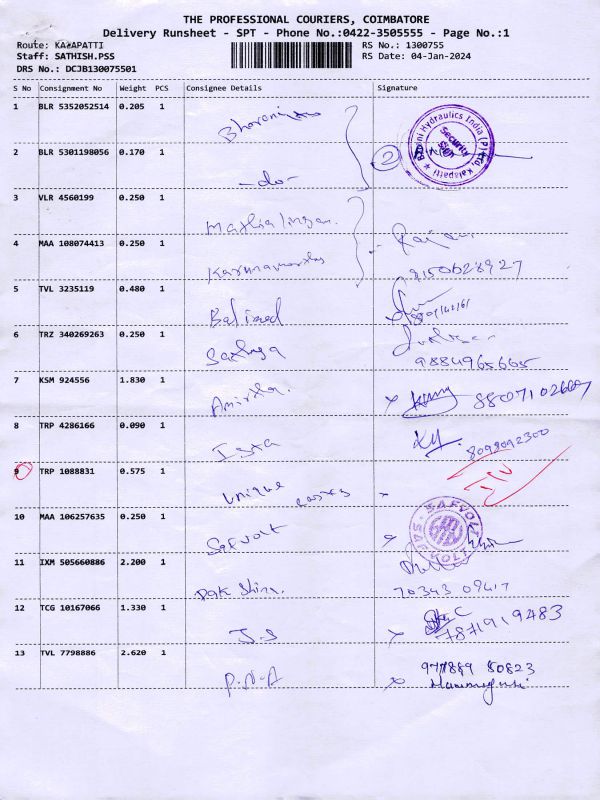 THE PROFESSIONAL COURIERS, COIMBATORE
Delivery Runsheet - SPT - Phone No.:0422-3505555 - Page No.:1
Route: KALAPATTI RS No.: 1300755
Staff: SATHISH.PSS RS Date: 04-Jan-2024
DRS No.: DCJB130075501
S No Consignment No Weight PCS Consignee Details Signature
1 BLR 5352052514 0.205 1
Bharani Hydraulics India (P) Ltd, Kalapatti
Security Sign
2 BLR 5301198056 0.170 1 -do- 2
3 VLR 4560199 0.250 1
4 MAA 108074413 0.250 1
9150628927
5 TVL 3235119 0.480 1
6 TRZ 340269263 0.250 1 Sathya
9884965665
7 KSM 924556 1.830 1 Amirtha.
8 TRP 4286166 0.090 1 8098092300
9 TRP 1088831 0.575 1 unique
10 MAA 106257635 0.250 1 Safvolt SAFVOLT SAFVOLT
11 IXM 505660886 2.200 1 70343 09417
12 TCG 10167066 1.330 1 J.S 7871919483
13 TVL 7798886 2.620 1 P.N.A 80823